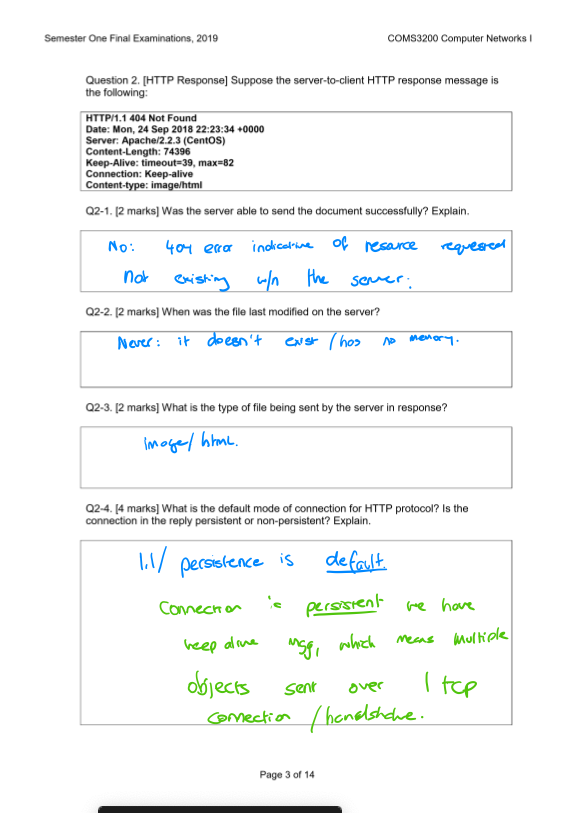 Semester One Final Examinations, 2019
COMS3200 Computer Networks I
Question 2. [HTTP Response] Suppose the server-to-client HTTP response message is
the following:
HTTP/1.1 404 Not Found
Date: Mon, 24 Sep 2018 22:23:34 +0000
Server: Apache/2.2.3 (CentOS)
Content-Length: 74396
Keep-Alive: timeout=39, max=82
Connection: Keep-alive
Content-type: image/html
Q2-1. [2 marks] Was the server able to send the document successfully? Explain.
No: 404 error indicative of resource requested
not existing w/n the server.
Q2-2. [2 marks] When was the file last modified on the server?
Never: it doesn't exist / has no memory.
Q2-3. [2 marks] What is the type of file being sent by the server in response?
image/html.
Q2-4. [4 marks] What is the default mode of connection for HTTP protocol? Is the
connection in the reply persistent or non-persistent? Explain.
1.1/ persistence is default.
Connection is persistent we have
keep alive msg, which means multiple
objects sent over 1 tcp
connection / handshake.
Page 3 of 14